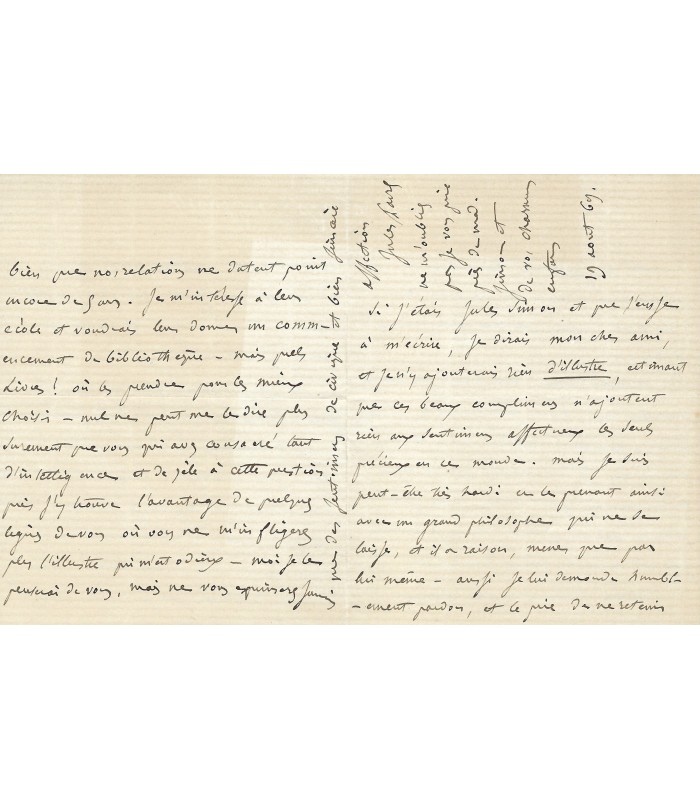 Si j'étais Jules Simon et que j'eusse
à m'écrire, je dirais mon cher ami,
et je n'y ajouterais rien d'illustre, estimant
que ces beaux complimens n'ajoutent
rien aux sentimens affectueux les seuls
précieux en ce monde. mais je suis
peut-être très hardi en le prenant ainsi
avec un grand philosophe qui ne se
laisse, et il a raison, mener que par
lui même - aussi je lui demande humbl-
-ement pardon, et le prie de ne retenir
bien que nos relations ne datent point
encore de 5 ans. Je m'intéresse à leur
école et voudrais leur donner un comm-
encement de bibliothèque - mais quels
livres! où les prendre pour les mieux
choisir - nul ne peut me le dire plus
surement que vous qui avez consacré tant
d'intelligence et de zèle à cette question
puis j'y trouve l'avantage de quelques
lignes de vous où vous ne m'infligerez
plus l'illustre qui m'est odieux - moi je le
penserai de vous, mais ne vous exprimerai jamais
que des sentimens de civique et bien sincère
affection
Jules Favre
ne m'oubliez
pas je vous prie
près de mad.
Simon et
de vos charmans
enfans
19 aout 69.